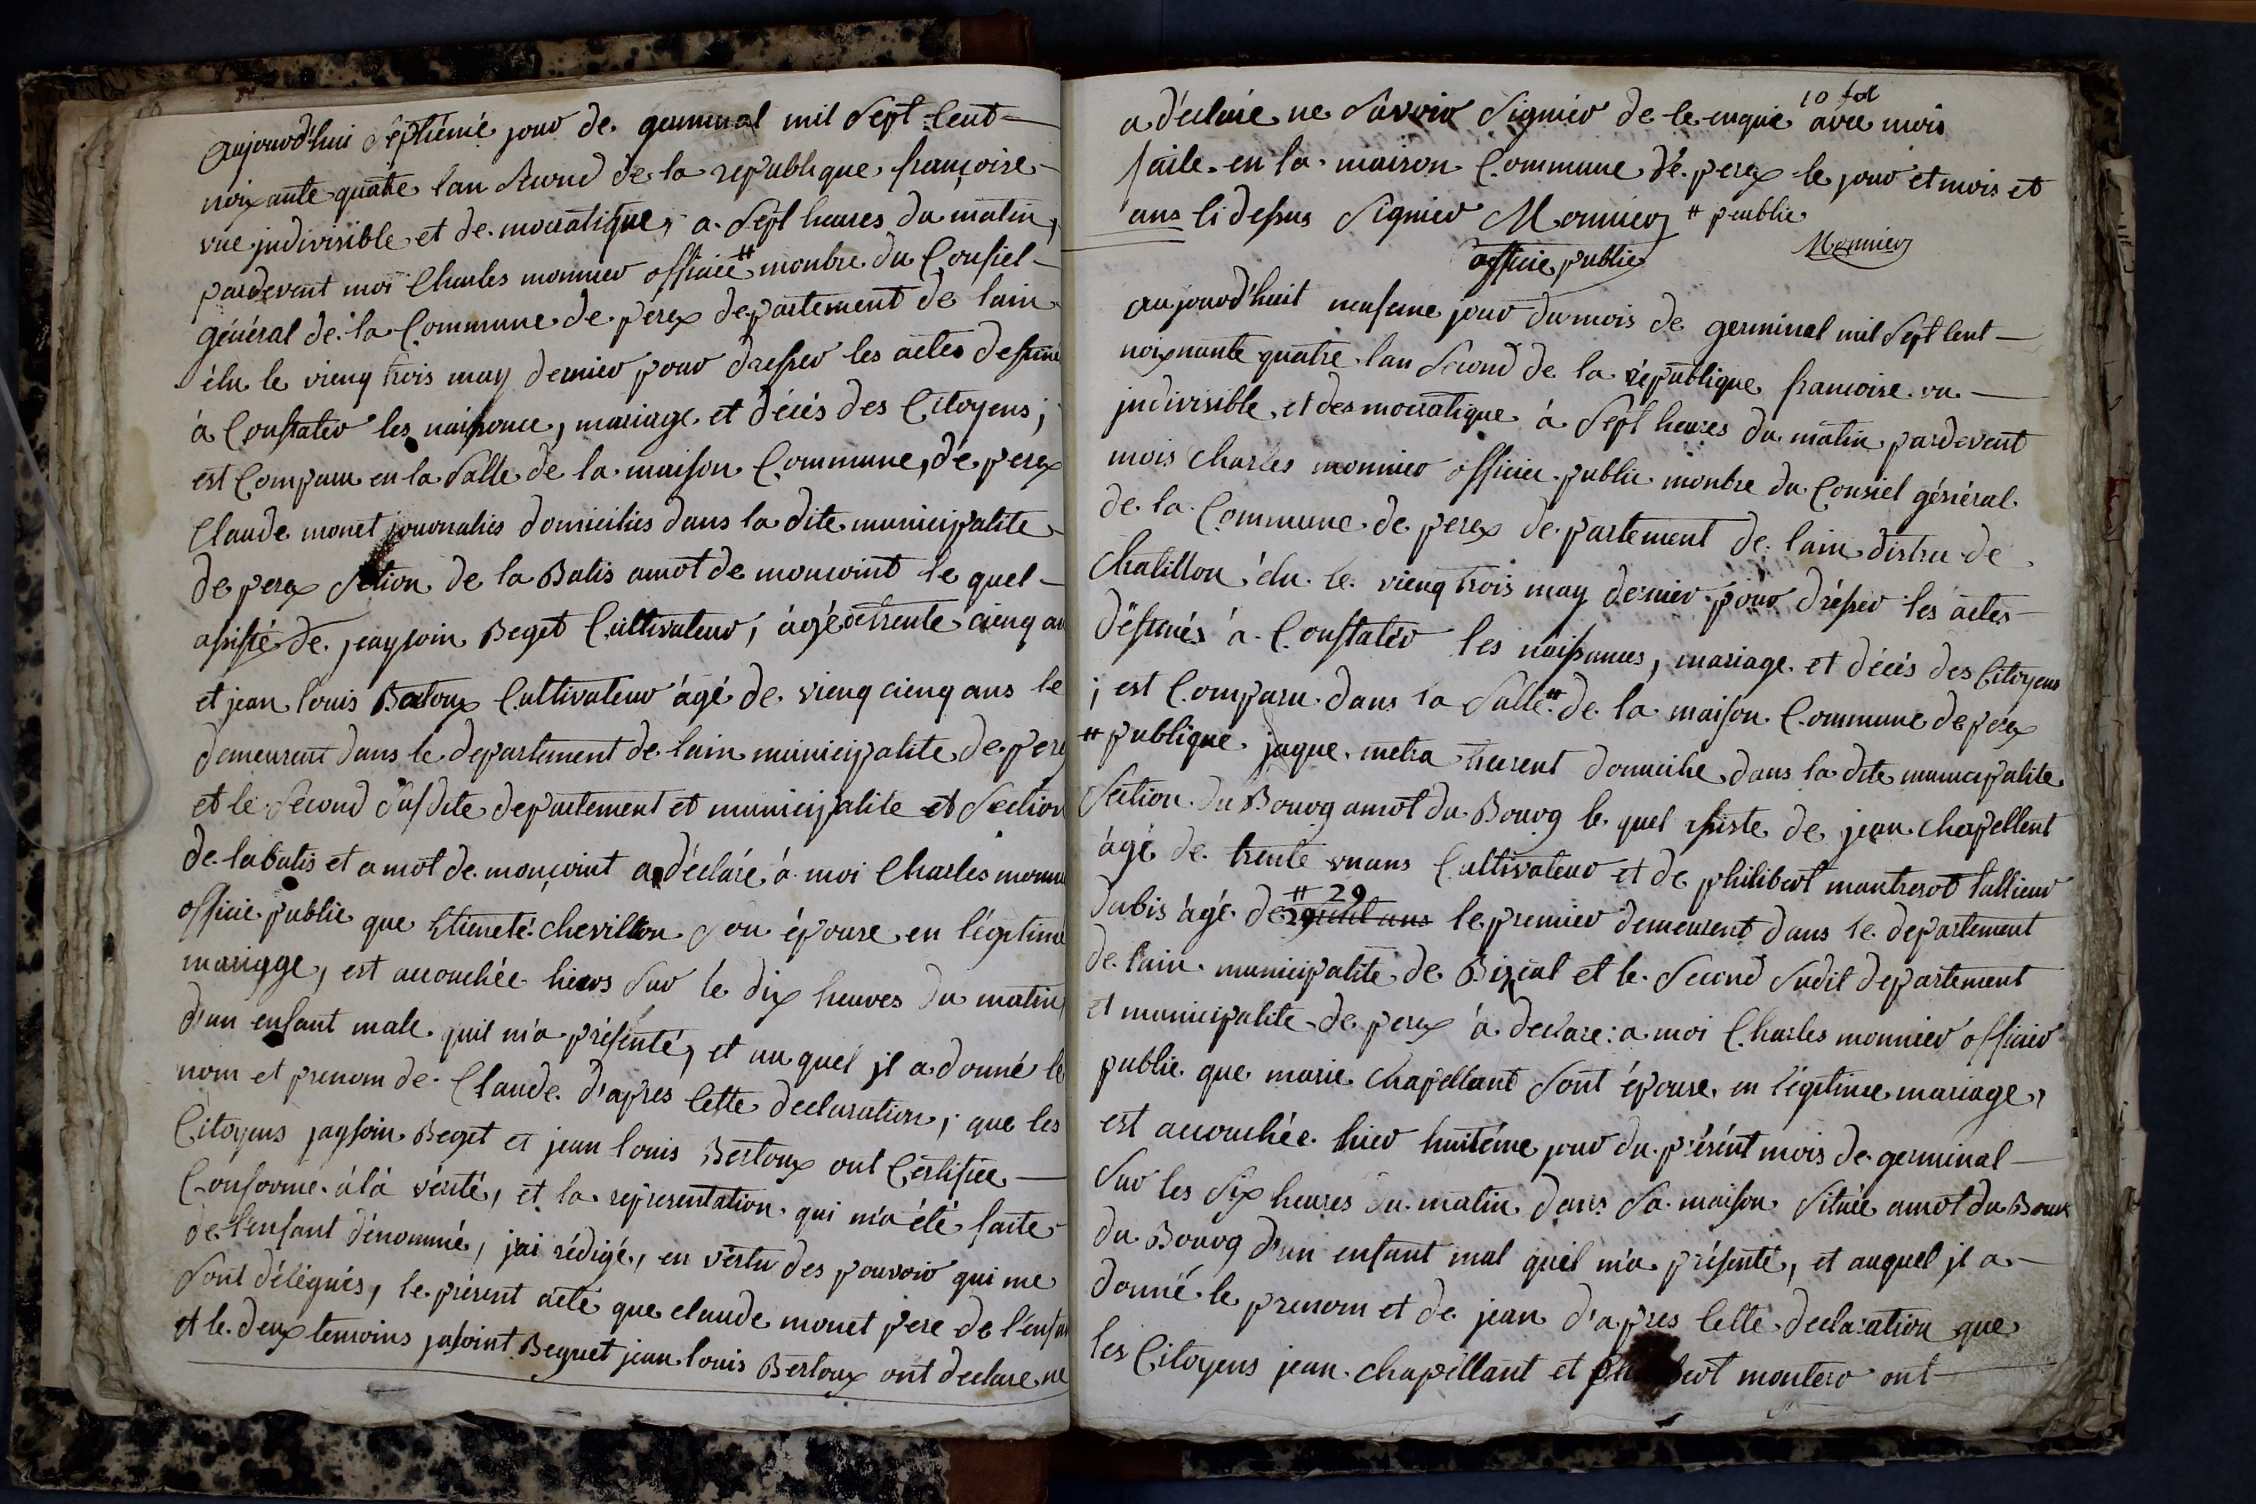 aujourd'hui septiéme jour de germinal mil sept cent
noixante quatre lan second de la republique françoise
vne jndivisible et de mocratique, a sept heures du matin,
pardevent moi Charles monnier officié # monbre du Consiel
général de la Commune de perex departement de lain
élu le vienq trois may dernier pour dresser les actes destiné
à Constater les naissence, mariage et décés des Citoyens;
est Comparu en la salle de la maison Commune, de perex
Claude monet journaliés domiciliés dans la dite municipalite
de perex section de la Batis amot de monçoint le quel
assisté de jaqsoin Beget Cultivateur, àgé de trente cienq an
et jean louis Bertoux Cultivateur àgé de vienq cienq ans le
demeurent dans le departement de lain municipalite de perex
et le second susdite departement et municipalite et section
de labatis et amot de monçoint a déclaré à moi Charles monnie
officie publie que Etienete chevillon son épouse en légitime
mariage, est accouchée hiers sur le dix heures du matin
d'un enfant male quil m'a présenté, et auquel jl a donné le
nom et prenom de Claude d'apres cette declaration; que les
Citoyens jaqsoin Beget et jean louis Bertoux ont Certifiee
Conforme à là vérité, et la representation qui m'a été faite
de l'enfant dénommé, j'ai rédigé, en vertu des pouvoir qui me
sont délégués, le présent acte que claude monet pere de l'enfan
et le deux temoins jasoint Beguet jean louis Bertoux ont declare ne
10 fol
a déclaré ne savoir signier de ce enquie avec mois
faite en la maison Commune dé perex le jour et mois et
ans ci dessus signier Monnier # peublie
officie publie Monnier
aujourd'huit neufieme jour du mois de germinal mil sept cent
noixnante quatre lan second de la république francoise vn
jndivisible et desmocratique à sept heures du matin pardevent
mois Charles monnier officier publie monbre du Consiel général
de la Commune de perex departement de lain distric de
Chatillon élu le vienq trois may dernier pour drésser les actes
déstinés à Constatér les naissances, mariage et décés des Citoyens
; est Comparu dans la salle # de la maison Commune de perex
# publique jaque metra domicilie dans la dite municipalite
section du Bourg amot du Bourg le quel assiste de jean chapellent
àgé de trente vnans Cultivateur et de philibert mantrerot tallieur
dabis àgé de # 29 le premier demeurent dans le departement
de lain municipalite de Biziat et le second sudit departement
et municipalite de perex à declare a moi Charles monnier officier
publie que marie chapellant sont épouse en légitime mariage,
est accouchée hier huitéme jour du présént mois de germinal
sur les six heures du matin dans sa maison située amot du Bour
du Bourg d'un enfant mal quiel m'a présenté, et auquel jl a
donné le prenom et de jean d'apres cette declaration que
les Citoyens jean chapellant et philibert montero ont